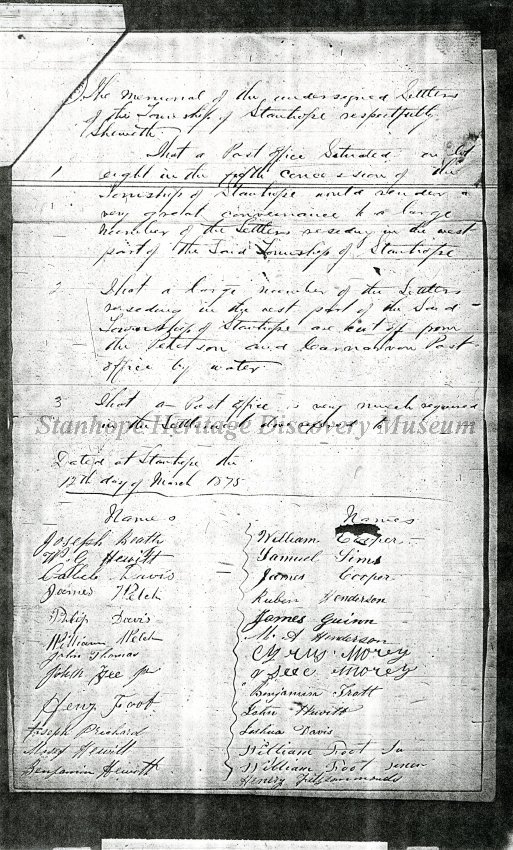 The Memorial of the undersigned Settlers
of the Township of Stanhope respectfully
Sheweth
That a Post Office Situated on lot
1 eight in the fifth concession of the
Township of Stanhope would render a
very great convenience to a large
number of the Settlers reseding in the west
part of the Said Township of Stanhope
2 That a large number of the Settlers
reseding in the west part of the Said
Township of Stanhope are cut off from
the Peterson and Carnarvon Post
office by water
3 That a Post Office is very much required
in the Settlement
Stanhope Heritage Discovery Museum
Dated at Stanhope the
12th day of March 1875
Names
Joseph Beath
W. G. Hewitt
Davis
James Welch
Philip Davis
William Welch
John Thomas
Free Jr
Henz Foot
Joseph Prichard
Hewitt
Benjamin Hewitt
Names
William Cooper
Samuel Sims
James Cooper
Ruben Henderson
James Guinn
M. A Henderson
Cyrus Morey
Morey
Benjamin Trott
John Hewitt
Joshua Davis
William Foot Ju
William Foot senior
Henery Fitzsimmonds